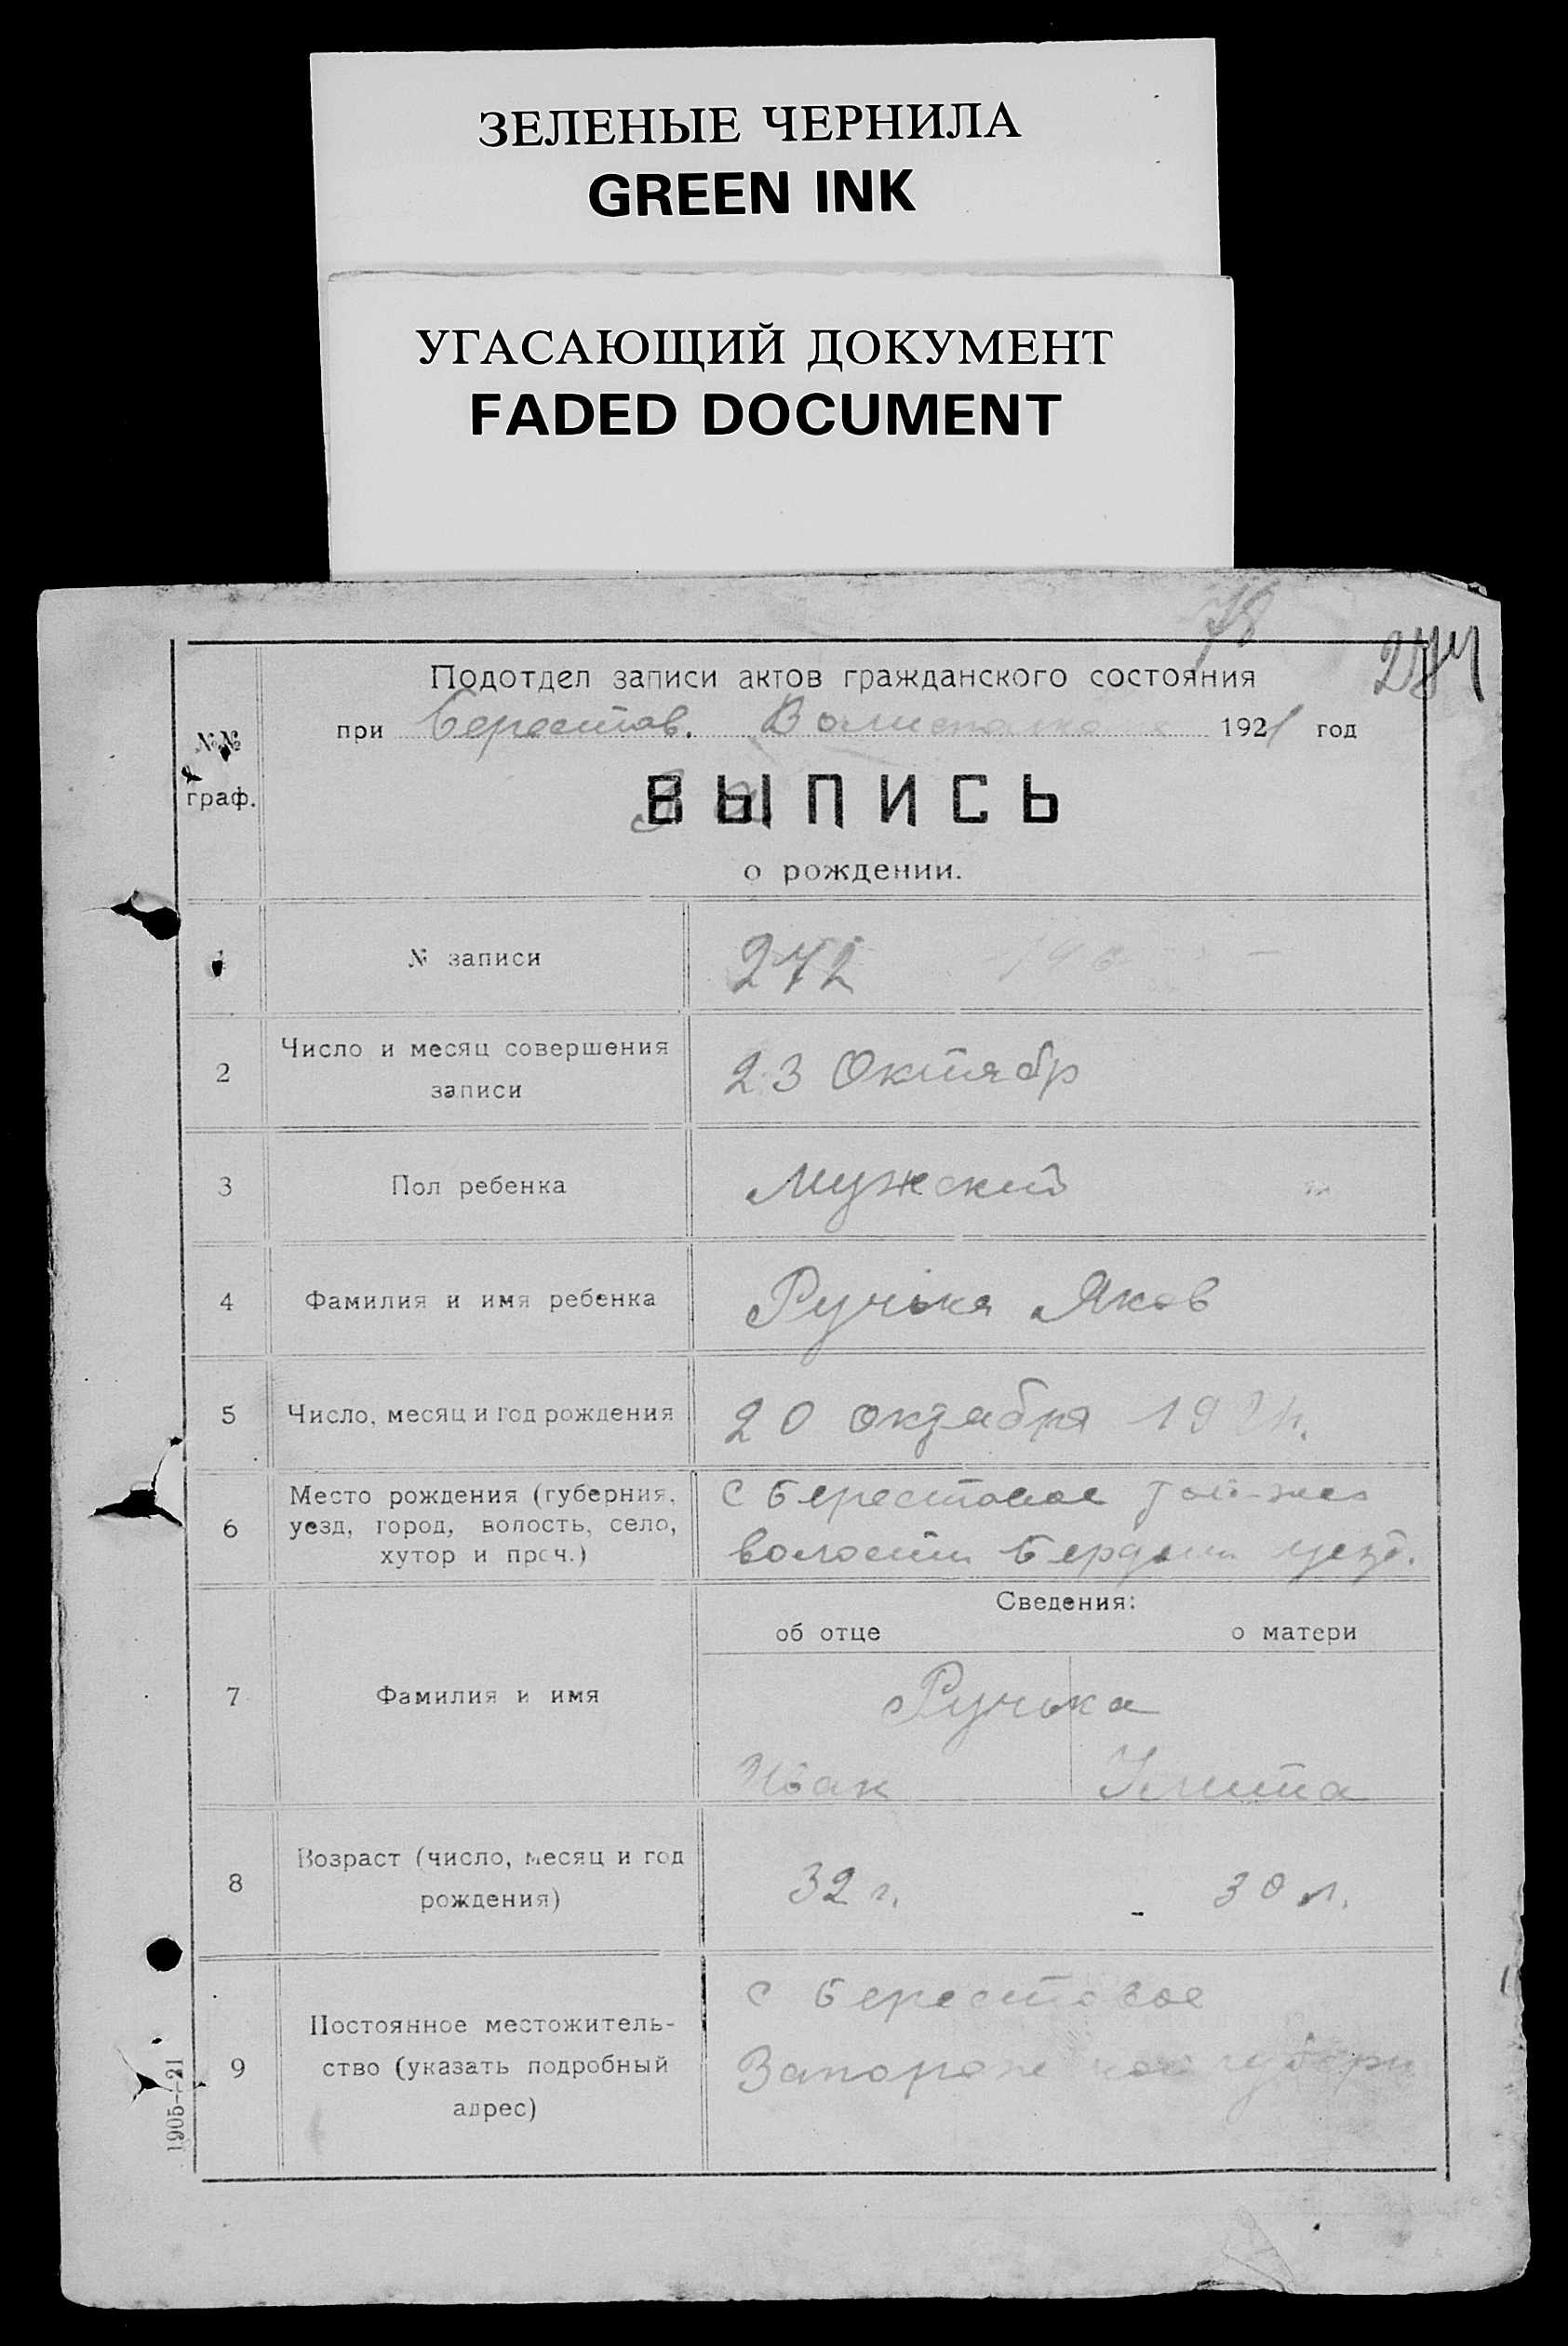 ЗЕЛЕНЫЕ ЧЕРНИЛА
GREEN INK
УГАСАЮЩИЙ ДОКУМЕНТ
FADED DOCUMENT
78
Подотдел записи актов гражданского состояния
при Берестов. 1921 год
№№
граф.
ВЫПИСЬ
о рождении.
1 № записи 272
2 Число и месяц совершения
записи
23 Октябр
3 Пол ребенка Мужский
4 Фамилия и имя ребенка Ручька Яков
5 Число, месяц и год рождения 20 октября 192
6 Место рождения (губерния,
уезд, город, волость, село,
хутор и проч.)
С Берестовое той-же
волости Бердян уезд.
Сведения:
об отце о матери
7 Фамилия и имя
Ручька
Иван Улита
8 Возраст (число, месяц и год
рождения)
32 г. 30 л.
9 Постоянное местожитель-
ство (указать подробный
адрес)
с Берестовое
Запорож губерн
1905—21